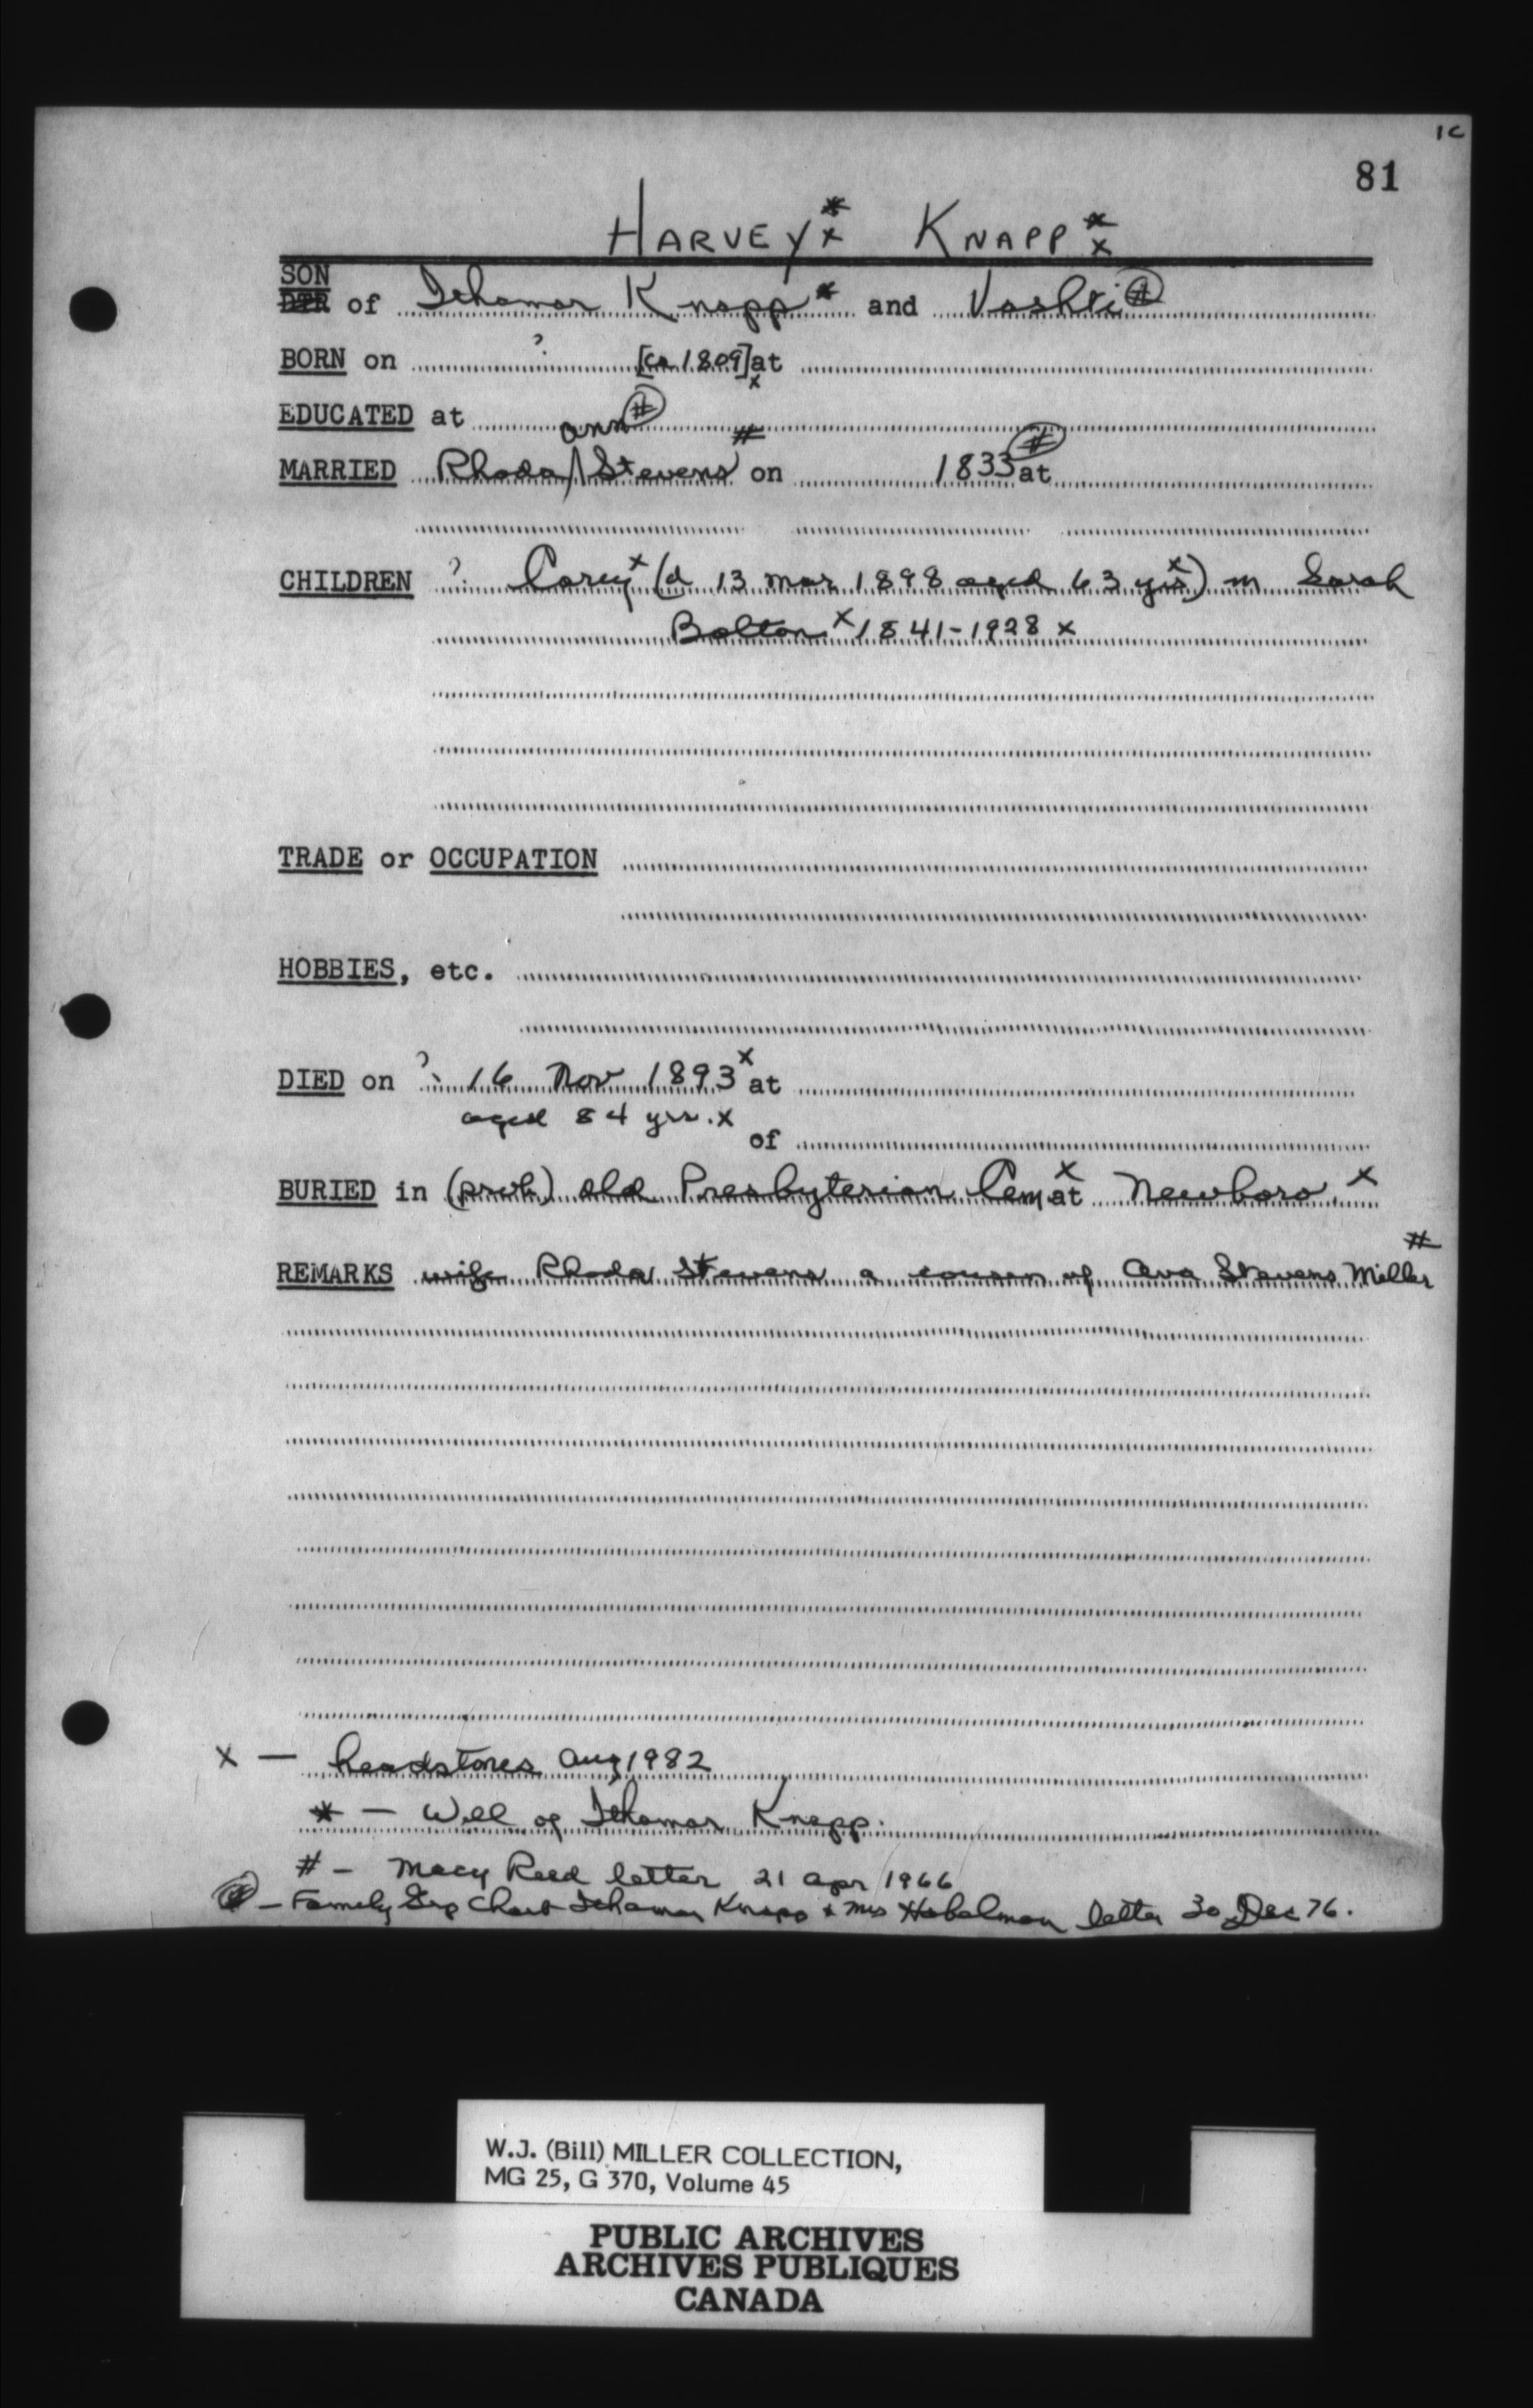 1C
81
HARVEY *x KNAPP *x
SON
DTR of Ithamar Knapp* and Vashti (#)
BORN on ? [ca 1809] x at
EDUCATED at
ann (#)
MARRIED Rhoda / Stevens # on 1833 (#) at
CHILDREN ? Carey x (d 13 mar 1898 aged 63 yrs x) m Sarah
Bolton x 1841-1928 x
TRADE or OCCUPATION
HOBBIES, etc.
DIED on ? 16 Nov 1893 x at
aged 84 yrs. x
of
BURIED in (prob) old Presbyterian Cem x at Newboro. x
REMARKS wife Rhoda Stevens a cousin of Ava Stevens Miller #
x — headstones Aug 1982
* — Will of Ithamar Knapp.
# — Macy Reed letter 21 Apr 1966
(#) — Family Grp Chart Ithamar Knapp & Mrs letter 30 Dec 76.
W.J. (Bill) MILLER COLLECTION,
MG 25, G 370, Volume 45
PUBLIC ARCHIVES
ARCHIVES PUBLIQUES
CANADA